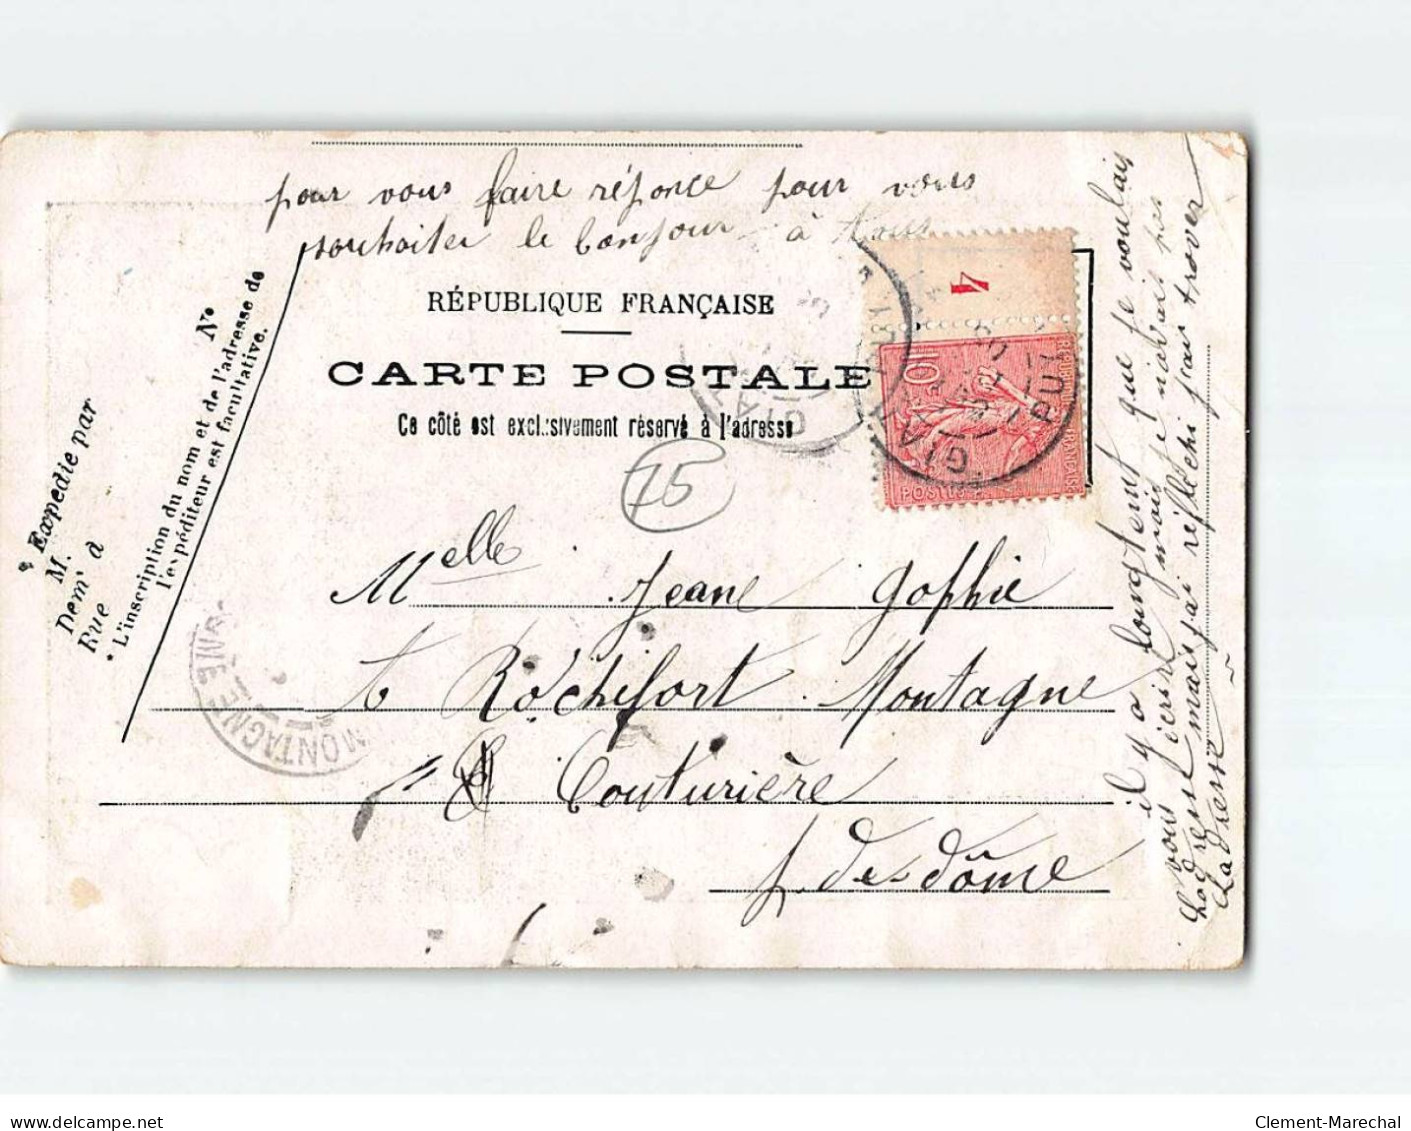 pour vous faire réponce pour vous
souhaiter le bonjour à tous
RÉPUBLIQUE FRANÇAISE
CARTE POSTALE
Ce côté est exclusivement réservé à l'adresse
Expedie par
M.
Dem^t à
Rue
N°
L'inscription du nom et de l'adresse de
l'expéditeur est facultative.
4
10
POSTES
75
GIAT
PUY
MONTAGNE
Melle Jeane Gophie
Rochifort Montagne
Couturière
p. de dôme
il y a longtemt que je voulais
vous écrire mais je n'avais pas
l'adresse mais j'ai réfléchi j'vais trover
l'adresse
Clement-Marechal